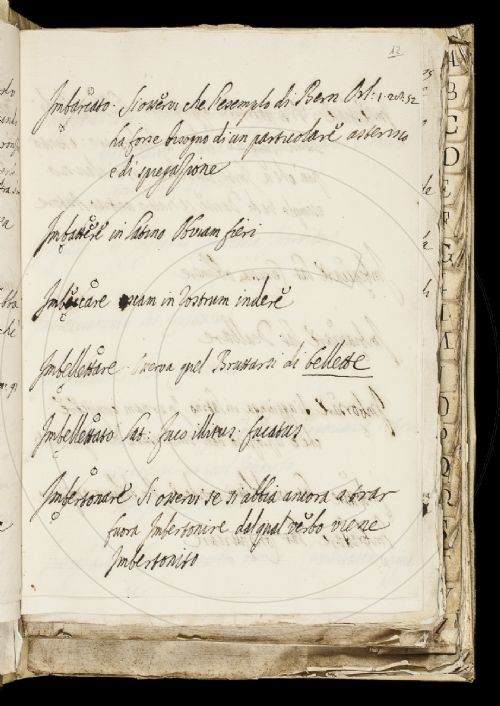 12
Imbarcato. Si osservi che l'esempio di Bern Orl: 1. 20. 52
ha forse bisogno di un particolare asterisco
e di spiegazione
Imbattere in latino Obviam fieri
Imbeccare escam in rostrum indere
Imbellettare Osserva quel Bruttarsi di bellette
Imbellettato Lat: fuco illitus. fucatus
Imbertonare Si osservi se si abbia ancora a trar
fuora Imbertonire dal qual verbo viene
Imbertonito
A
B
C
D
E
F
G
I
L
M
O
P
Q
R
S